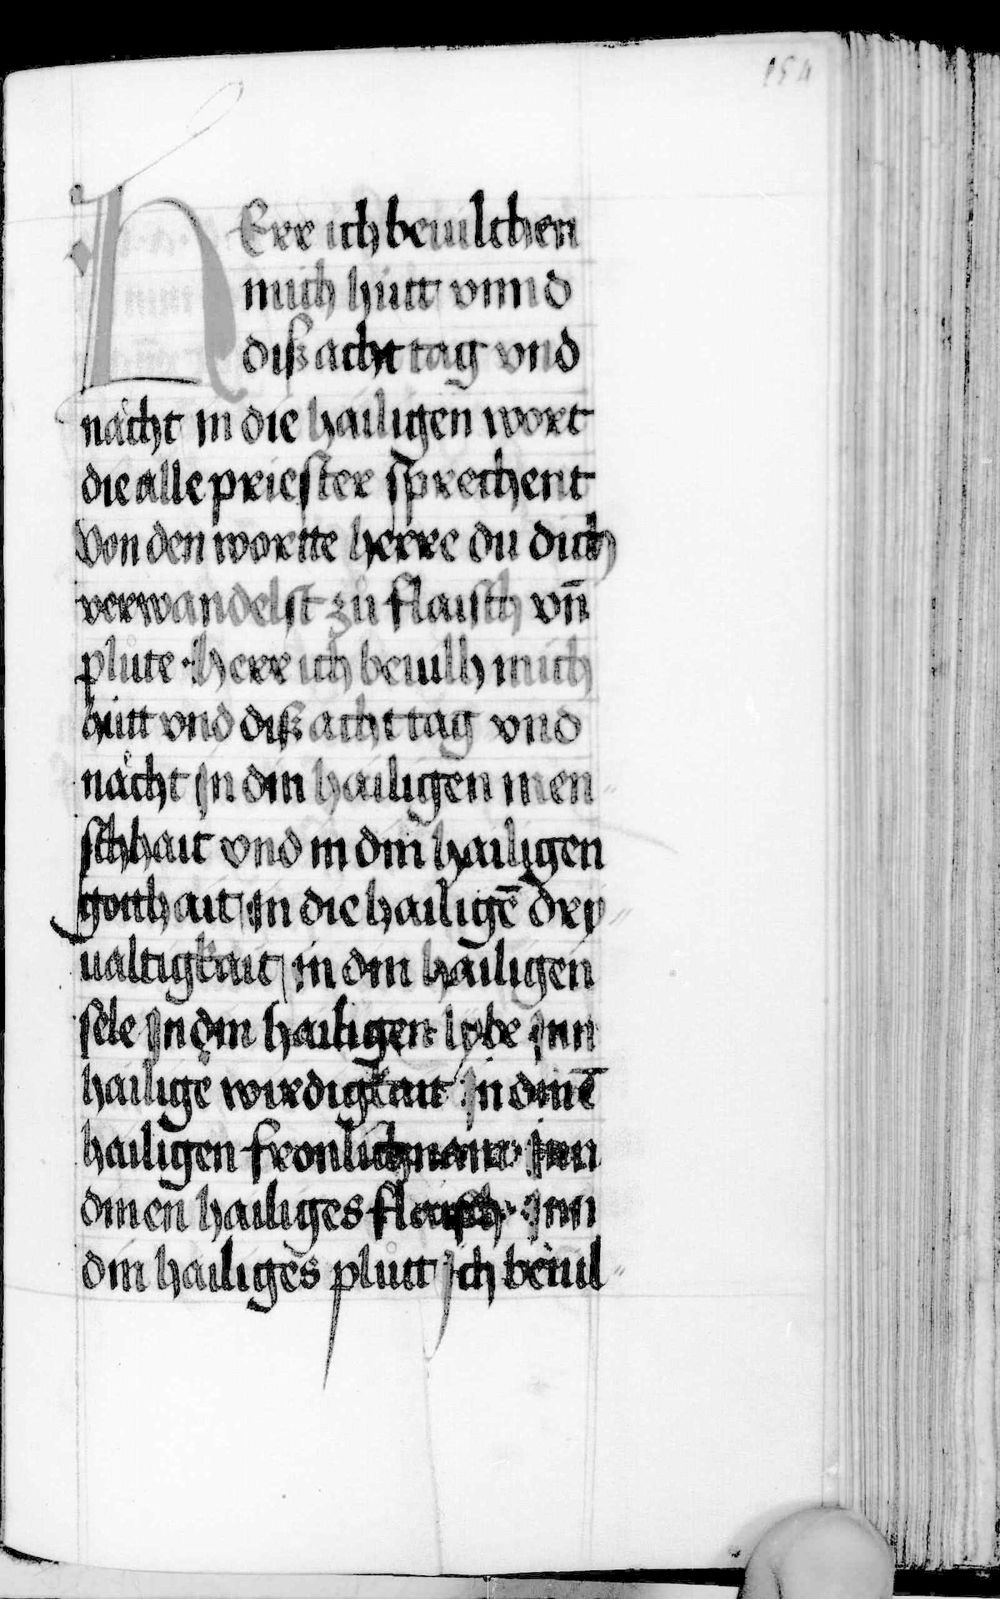 154
HErr ich beuilchen
mich hütt vnnd
diß acht tag vnd
nächt in die hailigen wort
die alle priester sprechent
Von den wortte herre du dich
verwandelst zů flaisch vn̄
plůte · herr ich beuilh mich
hütt vnd diß acht tag vnd
nächt jn din hailigen men⸗
schhait vnd in din hailigen
gotthait jn die hailigē dry⸗
ualtigkait jn din hailigen
sele Jn din hailigen lybe Jnn
hailige wirdigkait Jn dinē
hailigen fronlichnam · Jnn
dinen hailiges flaisch · Jnn
din hailiges plůtt Jch beuil⸗